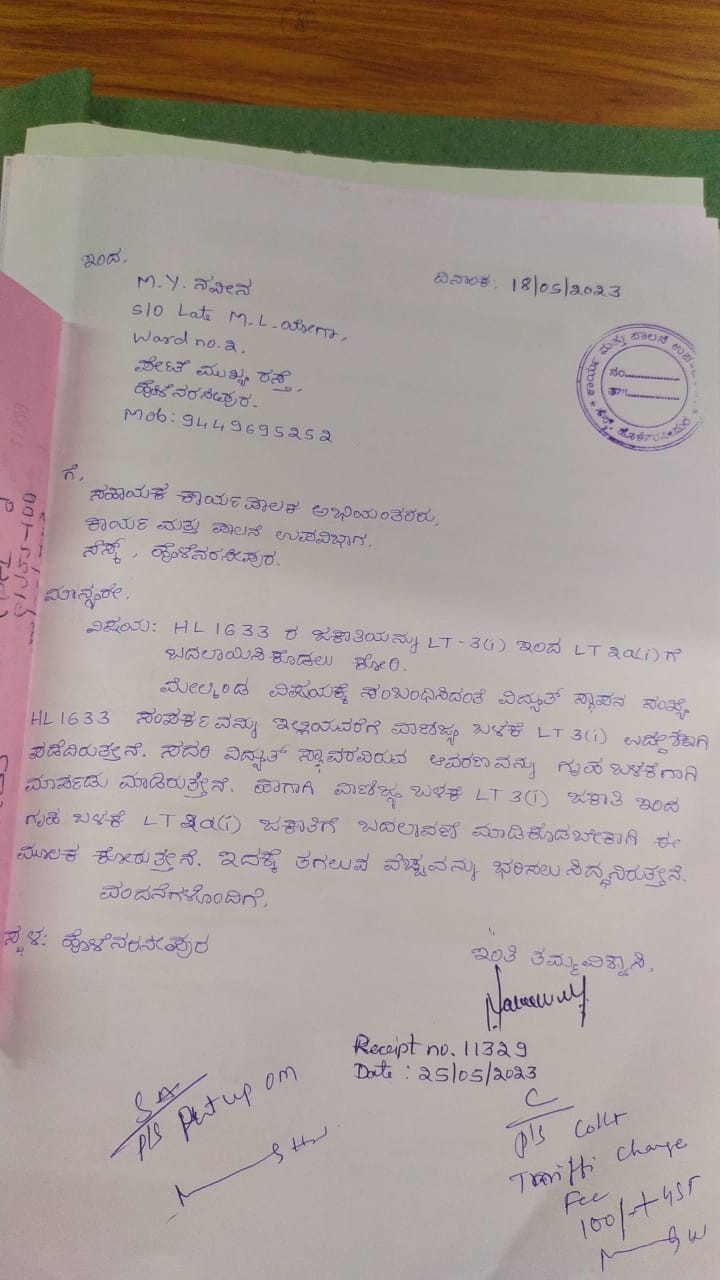 ಇಂದ,
ದಿನಾಂಕ: 18/05/2023
M.Y. ನವೀನ
S/O Late M.L. ಯೋಗಾ,
Ward no. 2,
ಪೇಟೆ ಮುಖ್ಯ ರಸ್ತೆ,
ಹೊಳೆನರಸೀಪುರ.
Mob: 9449695252
ಕಾರ್ಯ ಮತ್ತು ಪಾಲನೆ ಉಪ
ನಂ
ತಾ
ಸೆಸ್ಕ್, ಹೊಳೆನರಸೀಪುರ
ಗೆ,
ಸಹಾಯಕ ಕಾರ್ಯಪಾಲಕ ಅಭಿಯಂತರರು,
ಕಾರ್ಯ ಮತ್ತು ಪಾಲನೆ ಉಪವಿಭಾಗ,
ಸೆಸ್ಕ್, ಹೊಳೆನರಸೀಪುರ.
ಮಾನ್ಯರೇ,
ವಿಷಯ: HL1633 ರ ಜಕಾತಿಯನ್ನು LT-3(i) ಇಂದ LT2a(i) ಗೆ
ಬದಲಾಯಿಸಿಕೊಡಲು ಕೋರಿ.
ಮೇಲ್ಕಂಡ ವಿಷಯಕ್ಕೆ ಸಂಬಂಧಿಸಿದಂತೆ ವಿದ್ಯುತ್ ಸ್ಥಾಪನ ಸಂಖ್ಯೆ
HL1633 ಸಂಪರ್ಕವನ್ನು ಇಲ್ಲಿಯವರೆಗೆ ವಾಣಿಜ್ಯ ಬಳಕೆ LT3(i) ಉದ್ದೇಶಕ್ಕಾಗಿ
ಪಡೆದಿರುತ್ತೇನೆ. ಸದರಿ ವಿದ್ಯುತ್ ಸ್ಥಾವರವಿರುವ ಆವರಣವನ್ನು ಗೃಹ ಬಳಕೆಗಾಗಿ
ಮಾರ್ಪಾಡು ಮಾಡಿರುತ್ತೇನೆ. ಹಾಗಾಗಿ ವಾಣಿಜ್ಯ ಬಳಕೆ LT3(i) ಜಕಾತಿ ಇಂದ
ಗೃಹ ಬಳಕೆ LT2a(i) ಜಕಾತಿಗೆ ಬದಲಾವಣೆ ಮಾಡಿಕೊಡಬೇಕಾಗಿ ಈ
ಮೂಲಕ ಕೋರುತ್ತೇನೆ. ಇದಕ್ಕೆ ತಗಲುವ ವೆಚ್ಚವನ್ನು ಭರಿಸಲು ಸಿದ್ಧನಿರುತ್ತೇನೆ.
ವಂದನೆಗಳೊಂದಿಗೆ,
ಸ್ಥಳ: ಹೊಳೆನರಸೀಪುರ
ಇಂತಿ ತಮ್ಮ ವಿಶ್ವಾಸಿ,
Receipt no. 11329
Date: 25/05/2023
SA
Pls put up OM
C
Pls Collt
Tariffi Change
Fee
100/-+ GST